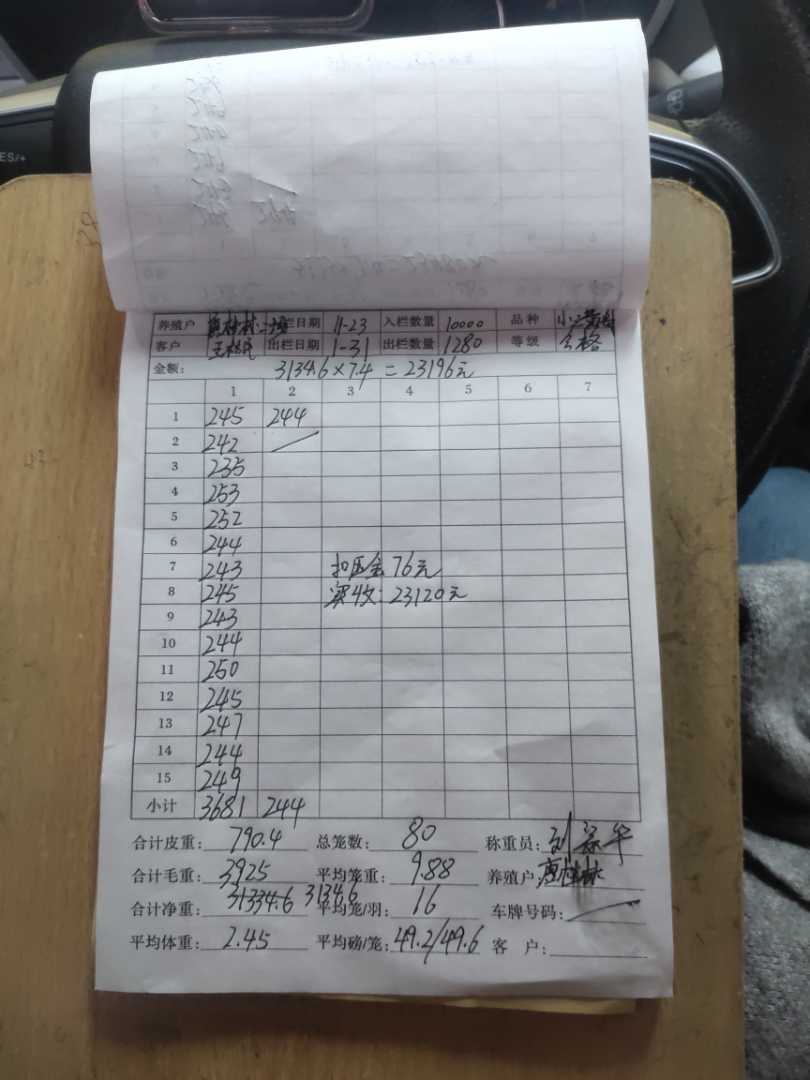 养殖户 唐桂林二场 栏日期 11-23 入栏数量 10000 品种 小
客户 王 出栏日期 1-31 出栏数量 1280 等级 合格
金额: 3134.6×7.4=23196元
1 2 3 4 5 6 7
1 245 244
2 242
3 235
4 253
5 252
6 244
7 243 扣压金76元
8 245 实收:23120元
9 243
10 244
11 250
12 245
13 247
14 244
15 249
小计 3681 244
合计皮重: 790.4 总笼数: 80 称重员: 刘
合计毛重: 3925 平均笼重: 9.88 养殖户: 唐桂林
合计净重: 31334.6 3134.6 平均笼/羽: 16 车牌号码:
平均体重: 2.45 平均磅/笼: 49.2/49.6 客 户: